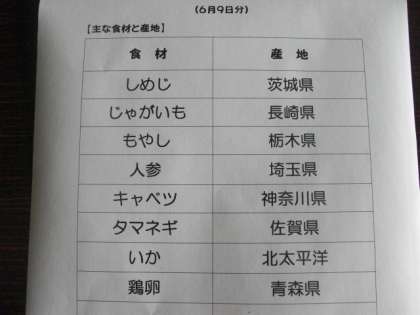 (6月9日分)
【主な食材と産地】
食 材 産 地
しめじ 茨城県
じゃがいも 長崎県
もやし 栃木県
人参 埼玉県
キャベツ 神奈川県
タマネギ 佐賀県
いか 北太平洋
鶏卵 青森県